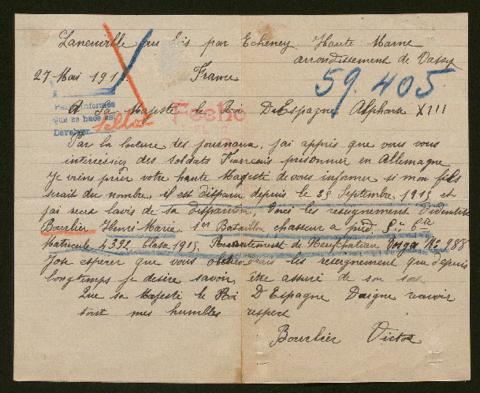 Laneuville au bois par Echenay Haute Marne
arrondissement de Vassy
27 Mai 191
France
59.405
A Sa Majesté le Roi D'Espagne Alphonse XIII
Fecho
que se hace
Par la lecture des journaux, j'ai appris que vous vous
interessiez des soldats Français prisonnier en Allemagne
Je viens prier votre haute Majesté de vous informer si mon fils
serait du nombre, il est disparu depuis le 25 Septembre 1915 et
j'ai reçu l'avis de sa disparition, Voici les renseignement D'identité
Bourlier Henri Marie 1er Bataillon chasseur a pied
Matricule 4392 Classe 1915 Recrutement de Neufchateau Vosges No 988
J'ose esperer que vous les renseignement que depuis
longtemps je desire savoir, être assuré de son
Que Sa Majesté le Roi D'Espagne Daigne recevoir
mes humbles respect
Bourlier Victor